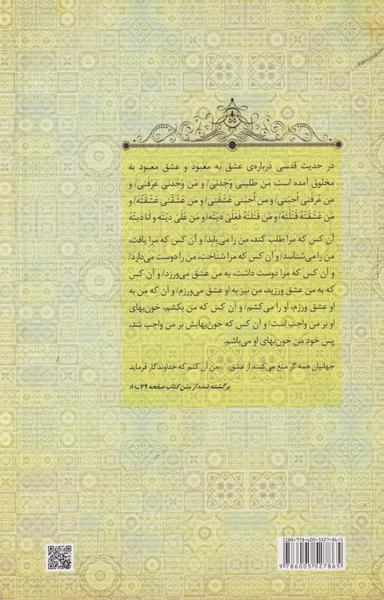 در حدیث قدسی درباره‌ی عشق به معبود و عشق معبود به
مخلوق آمده است: من طلبنی وَجَدنی/ و مَن وَجَدنی عَرَفنی/ و
مَن عَرَفنی اَحبّنی/ و من اَحبّنی عَشَقَنی/ و مَن عَشَقَنی عَشَقْتُهُ/ و
مَن عَشَقْتُهُ قَتَلْتُهُ/ و مَن قَتَلْتُهُ فَعَلیَّ دیتُه/ و مَن عَلَیَّ دیته و اَنا دیتُهُ
آن کس که مرا طلب کند، من را می‌یابد/ و آن کس که مرا یافت،
من را می‌شناسد/ و آن کس که مرا شناخت، من را دوست می‌دارد/
و آن کس که مرا دوست داشت، به من عشق می‌ورزد/ و آن کس
که به من عشق ورزید، من نیز به او عشق می‌ورزم/ و آن که من به
او عشق ورزم، او را می‌کشم/ و آن کس که من بکشم، خون‌بهای
او بر من واجب است/ و آن کس که خون‌بهایش بر من واجب شد،
پس خود من خون‌بهای او می‌باشم.
جهانیان همه گر منع می‌کنند از عشق من آن کنم که خداوندگار فرماید
برگشته شده از متن کتاب صفحه ۷۹ـ۸۰
ISBN:978-600-5527-86-5
9 786005 527865